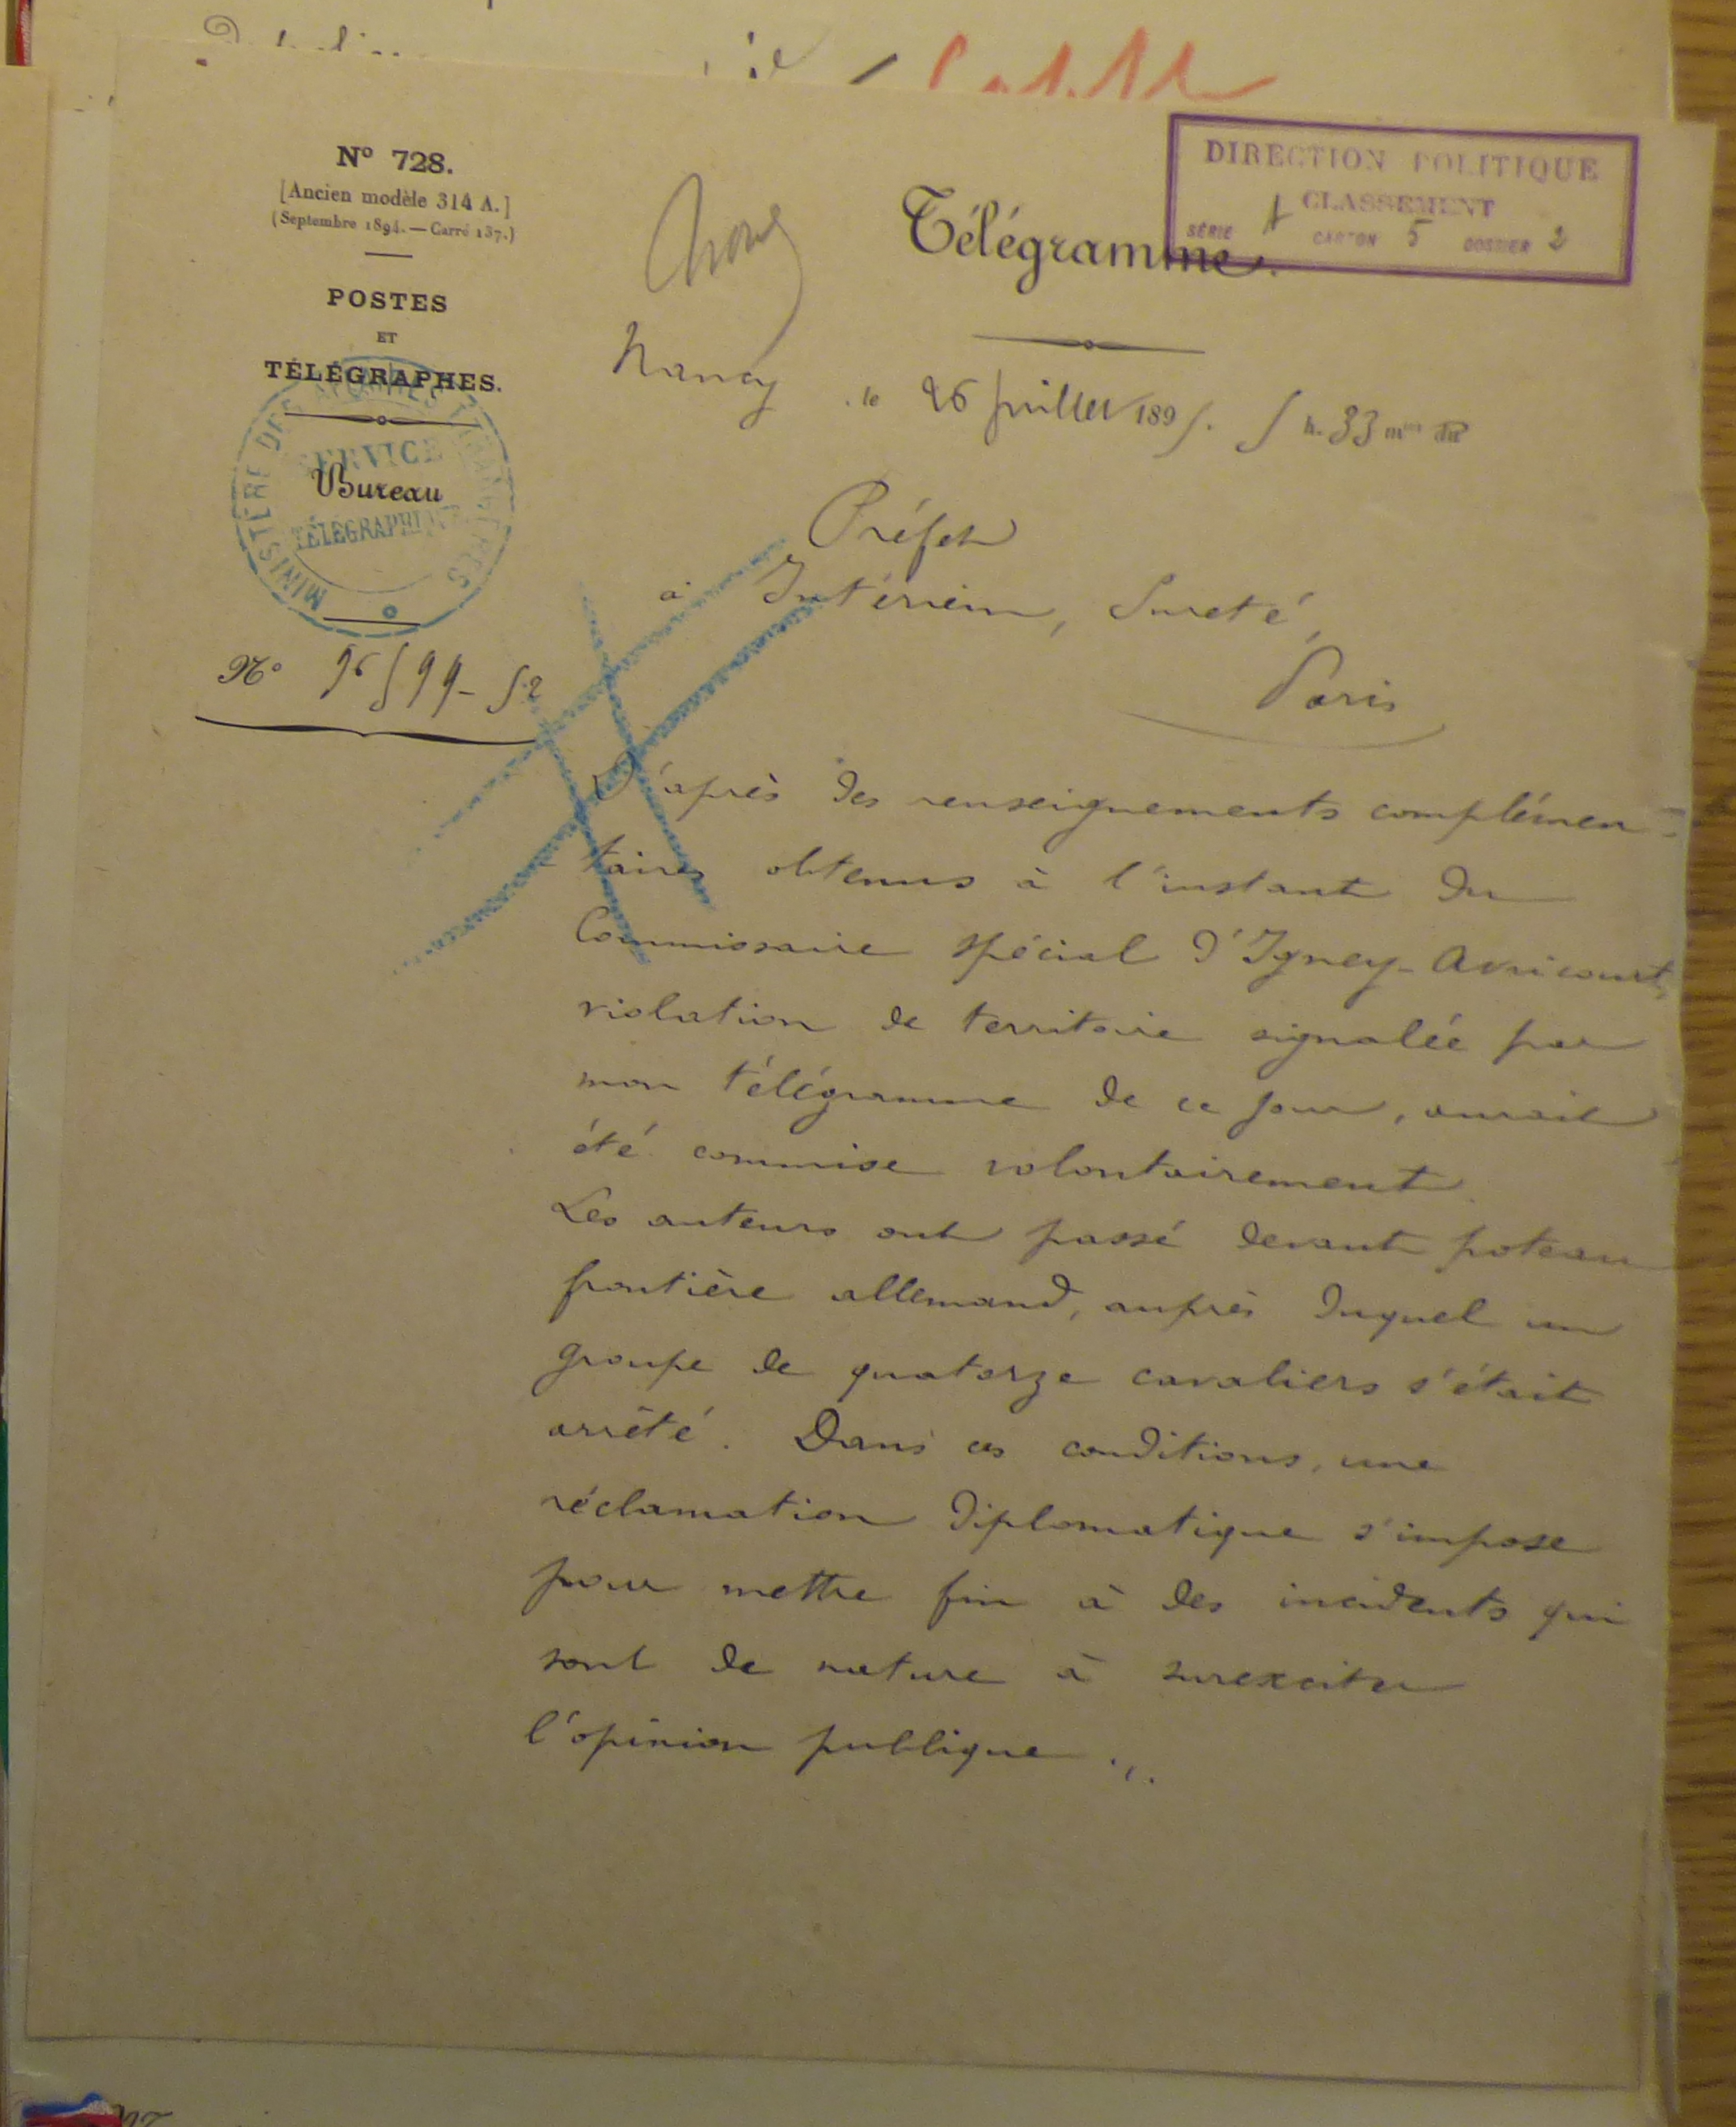 N° 728.
[Ancien modèle 314 A.]
(Septembre 1894. — Carré 137.)
POSTES
ET
TÉLÉGRAPHES.
MINISTÈRE DES AFFAIRES ÉTRANGÈRES
SERVICE
Bureau
TÉLÉGRAPHIQUE
N°
DIRECTION POLITIQUE
CLASSEMENT
SÉRIE A CARTON 5 DOSSIER 2
Télégramme.
Nancy, le 26 juillet 1895. 5 h. 33 m du
Préfet
à Intérieur, Sureté,
Paris
D'après des renseignements complémen-
-taires obtenus à l'instant du
Commissaire spécial d'Igney-Avricourt,
violation de territoire signalée par
mon télégramme de ce jour, aurait
été commise volontairement.
Les auteurs ont passé devant poteau
frontière allemand, auprès duquel un
groupe de quatorze cavaliers s'était
arrêté. Dans ces conditions, une
réclamation diplomatique s'impose
pour mettre fin à des incidents qui
sont de nature à surexciter
l'opinion publique ./.